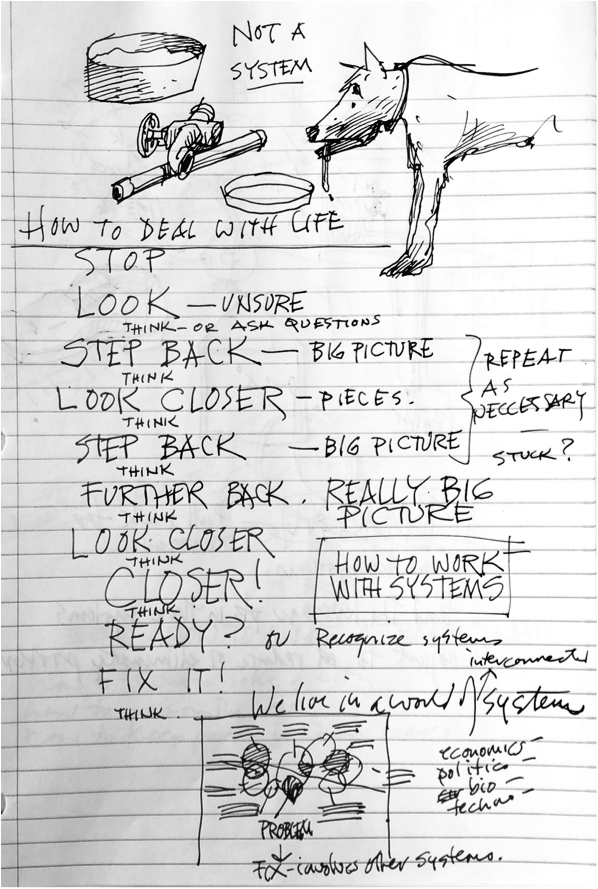 NOT A
SYSTEM
HOW TO DEAL WITH LIFE
STOP
LOOK — UNSURE
THINK – OR ASK QUESTIONS
STEP BACK — BIG PICTURE
THINK
LOOK CLOSER – PIECES.
THINK
STEP BACK — BIG PICTURE
THINK
REPEAT
AS
NECCESSARY
—
STUCK?
FURTHER BACK. REALLY BIG
PICTURE
THINK
LOOK CLOSER
THINK
CLOSER!
THINK
HOW TO WORK
WITH SYSTEMS
READY? or Recognize systems
FIX IT!
THINK.
interconnected
We live in a world of system
economics –
politics –
bio –
techno –
PROBLEM
FIX – involves other systems.